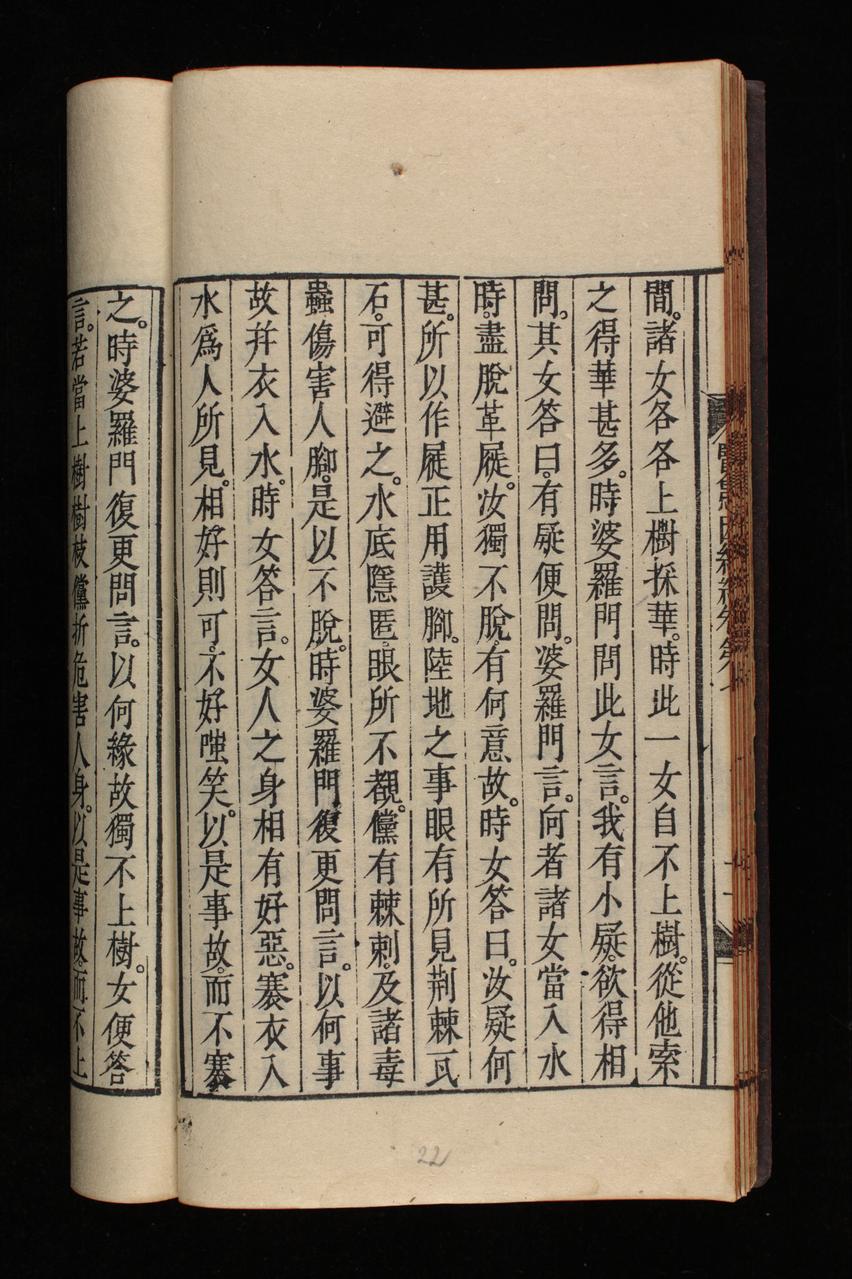 間。諸女各各上樹採華。時此一女自不上樹。從他索
之得華甚多。時婆羅門問此女言。我有小疑。欲得相
問。其女答曰。有疑便問。婆羅門言。向者諸女當入水
時。盡脫革屣。汝獨不脫。有何意故。時女答曰。汝疑何
甚。所以作屣正用護腳。陸地之事眼有所見荆棘瓦
石。可得避之。水底隱匿。眼所不覩。儻有棘刺。及諸毒
蟲傷害人腳。是以不脫。時婆羅門復更問言。以何事
故并衣入水。時女答言。女人之身相有好惡。褰衣入
水爲人所見。相好則可。不好嗤笑。以是事故。而不褰
之。時婆羅門復更問言。以何緣故獨不上樹。女便答
言。若當上樹樹枝儻折危害人身。以是事故。而不上
22